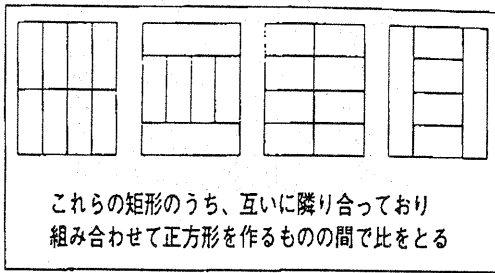 これらの矩形のうち、互いに隣り合っており
組み合わせて正方形を作るものの間で比をとる